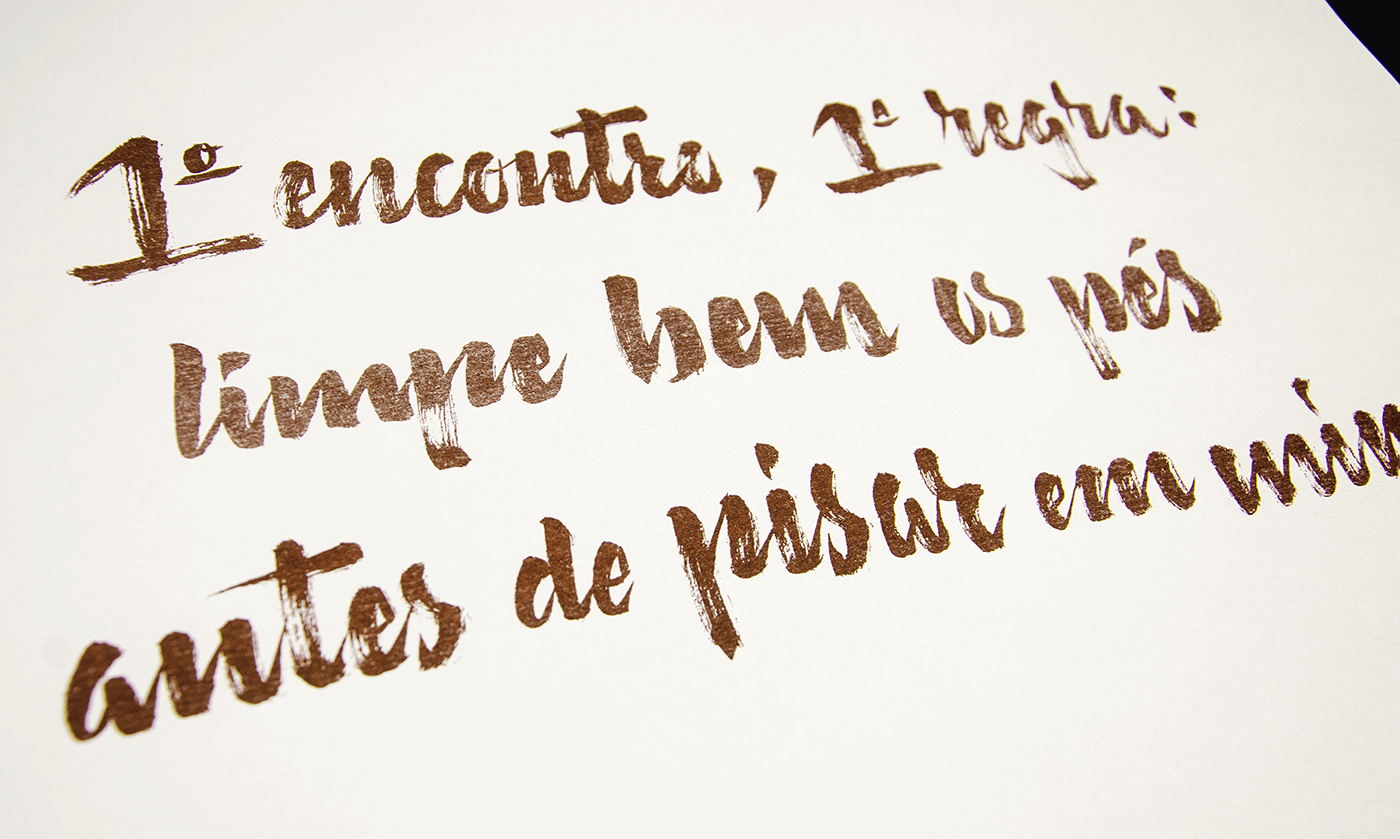 1º encontro, 1ª regra:
limpe bem os pés
antes de pisar em